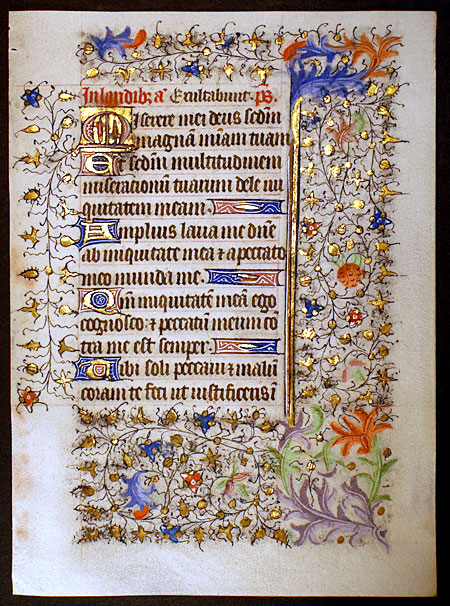 In laudib; an̄ Exultabunt. p̄s
Miserere mei deus scd̄m
magnā m̄iam tuam
Et scd̄m multitudinem
miserationū tuarum dele ini
quitatem meam.
Amplius laua me d̄ne
ab iniquitate mea ⁊ a peccato
meo munda me.
Qm̄ iniquitatē meā ego
cognosco ⁊ peccatū meum cō
tra me est semper.
Tibi soli peccaui ⁊ malū
coram te feci ut iustificeris ī